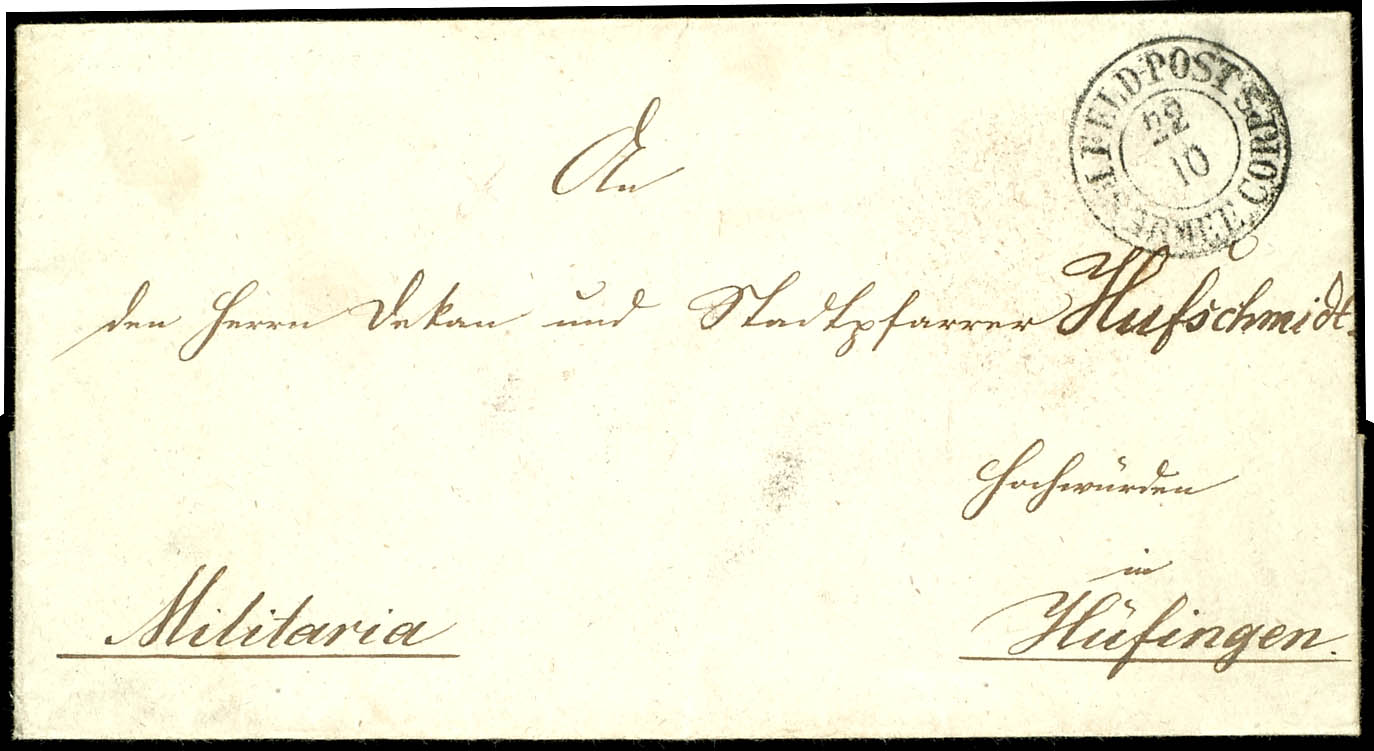 FELD-POST
ARMEE CORPS
10
An
den Herrn Dekan und Stadtpfarrer Hufschmidt.
Hochwürden
in
Militaria
Hüfingen.